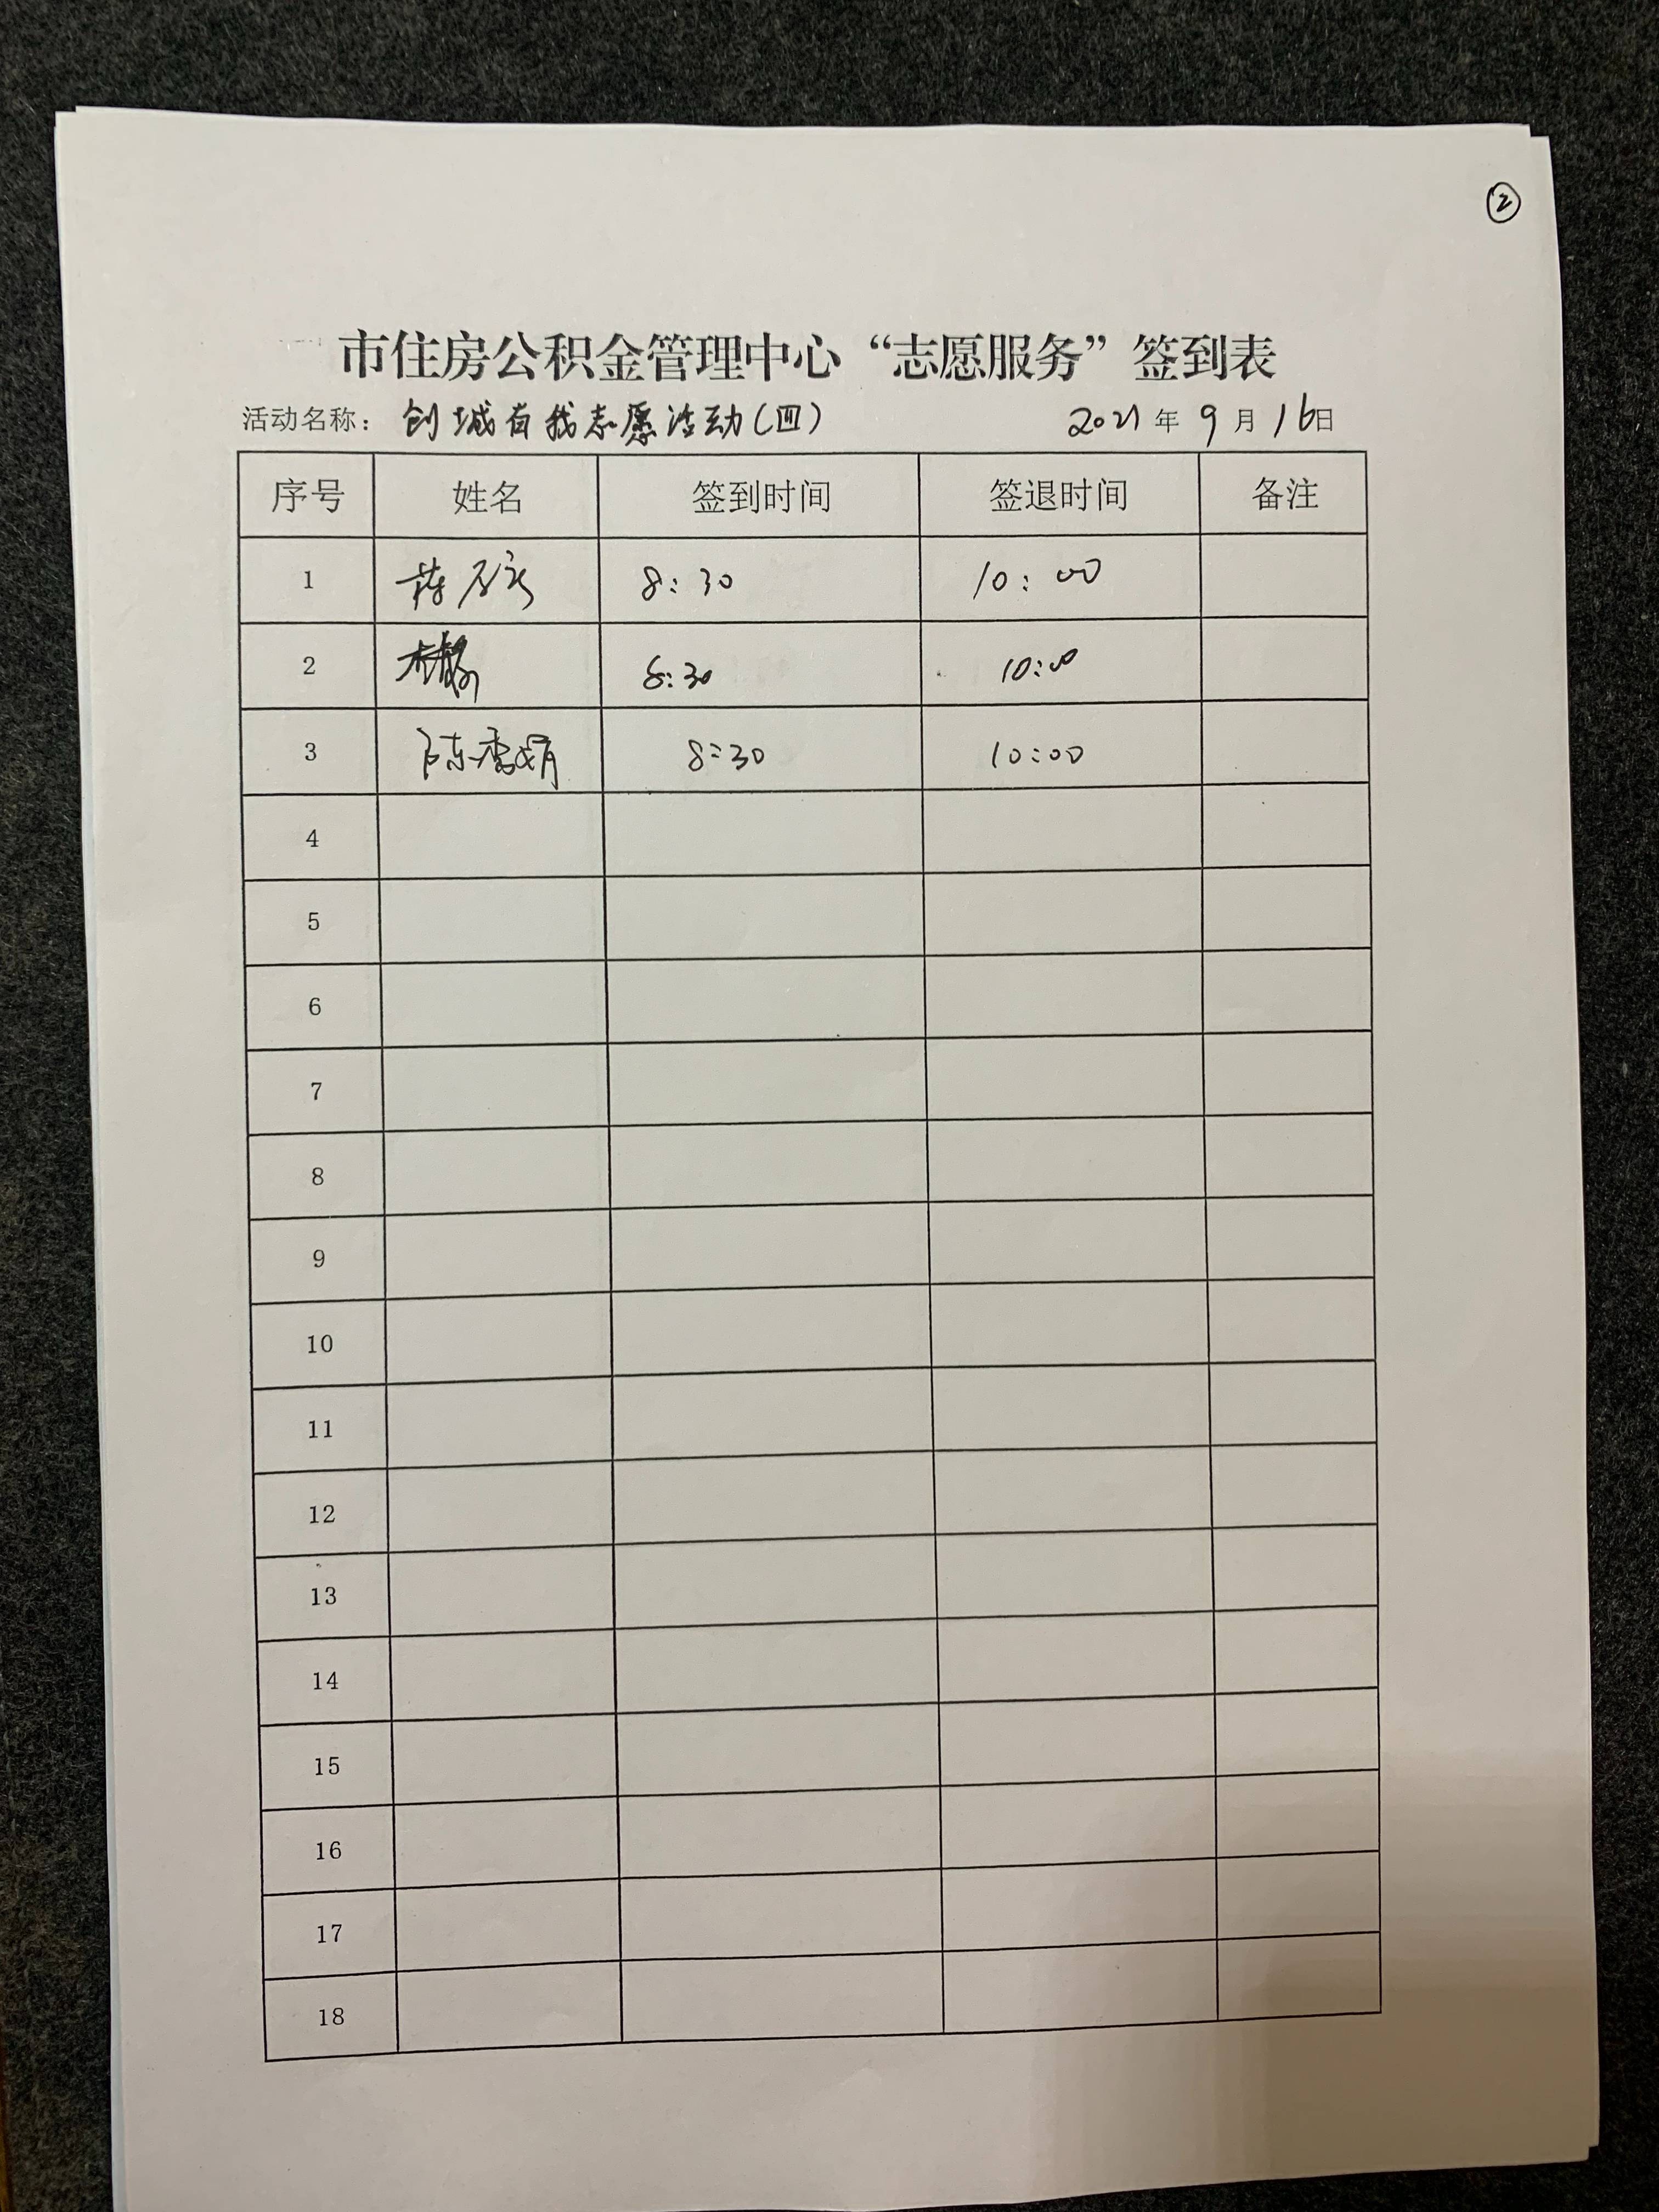 ②
市住房公积金管理中心“志愿服务”签到表
活动名称：创城有我志愿活动（四） 2021年9月16日
序号 姓名 签到时间 签退时间 备注
1 8:30 10:00
2 8:30 10:00
3 陈季娟 8:30 10:00
4
5
6
7
8
9
10
11
12
13
14
15
16
17
18